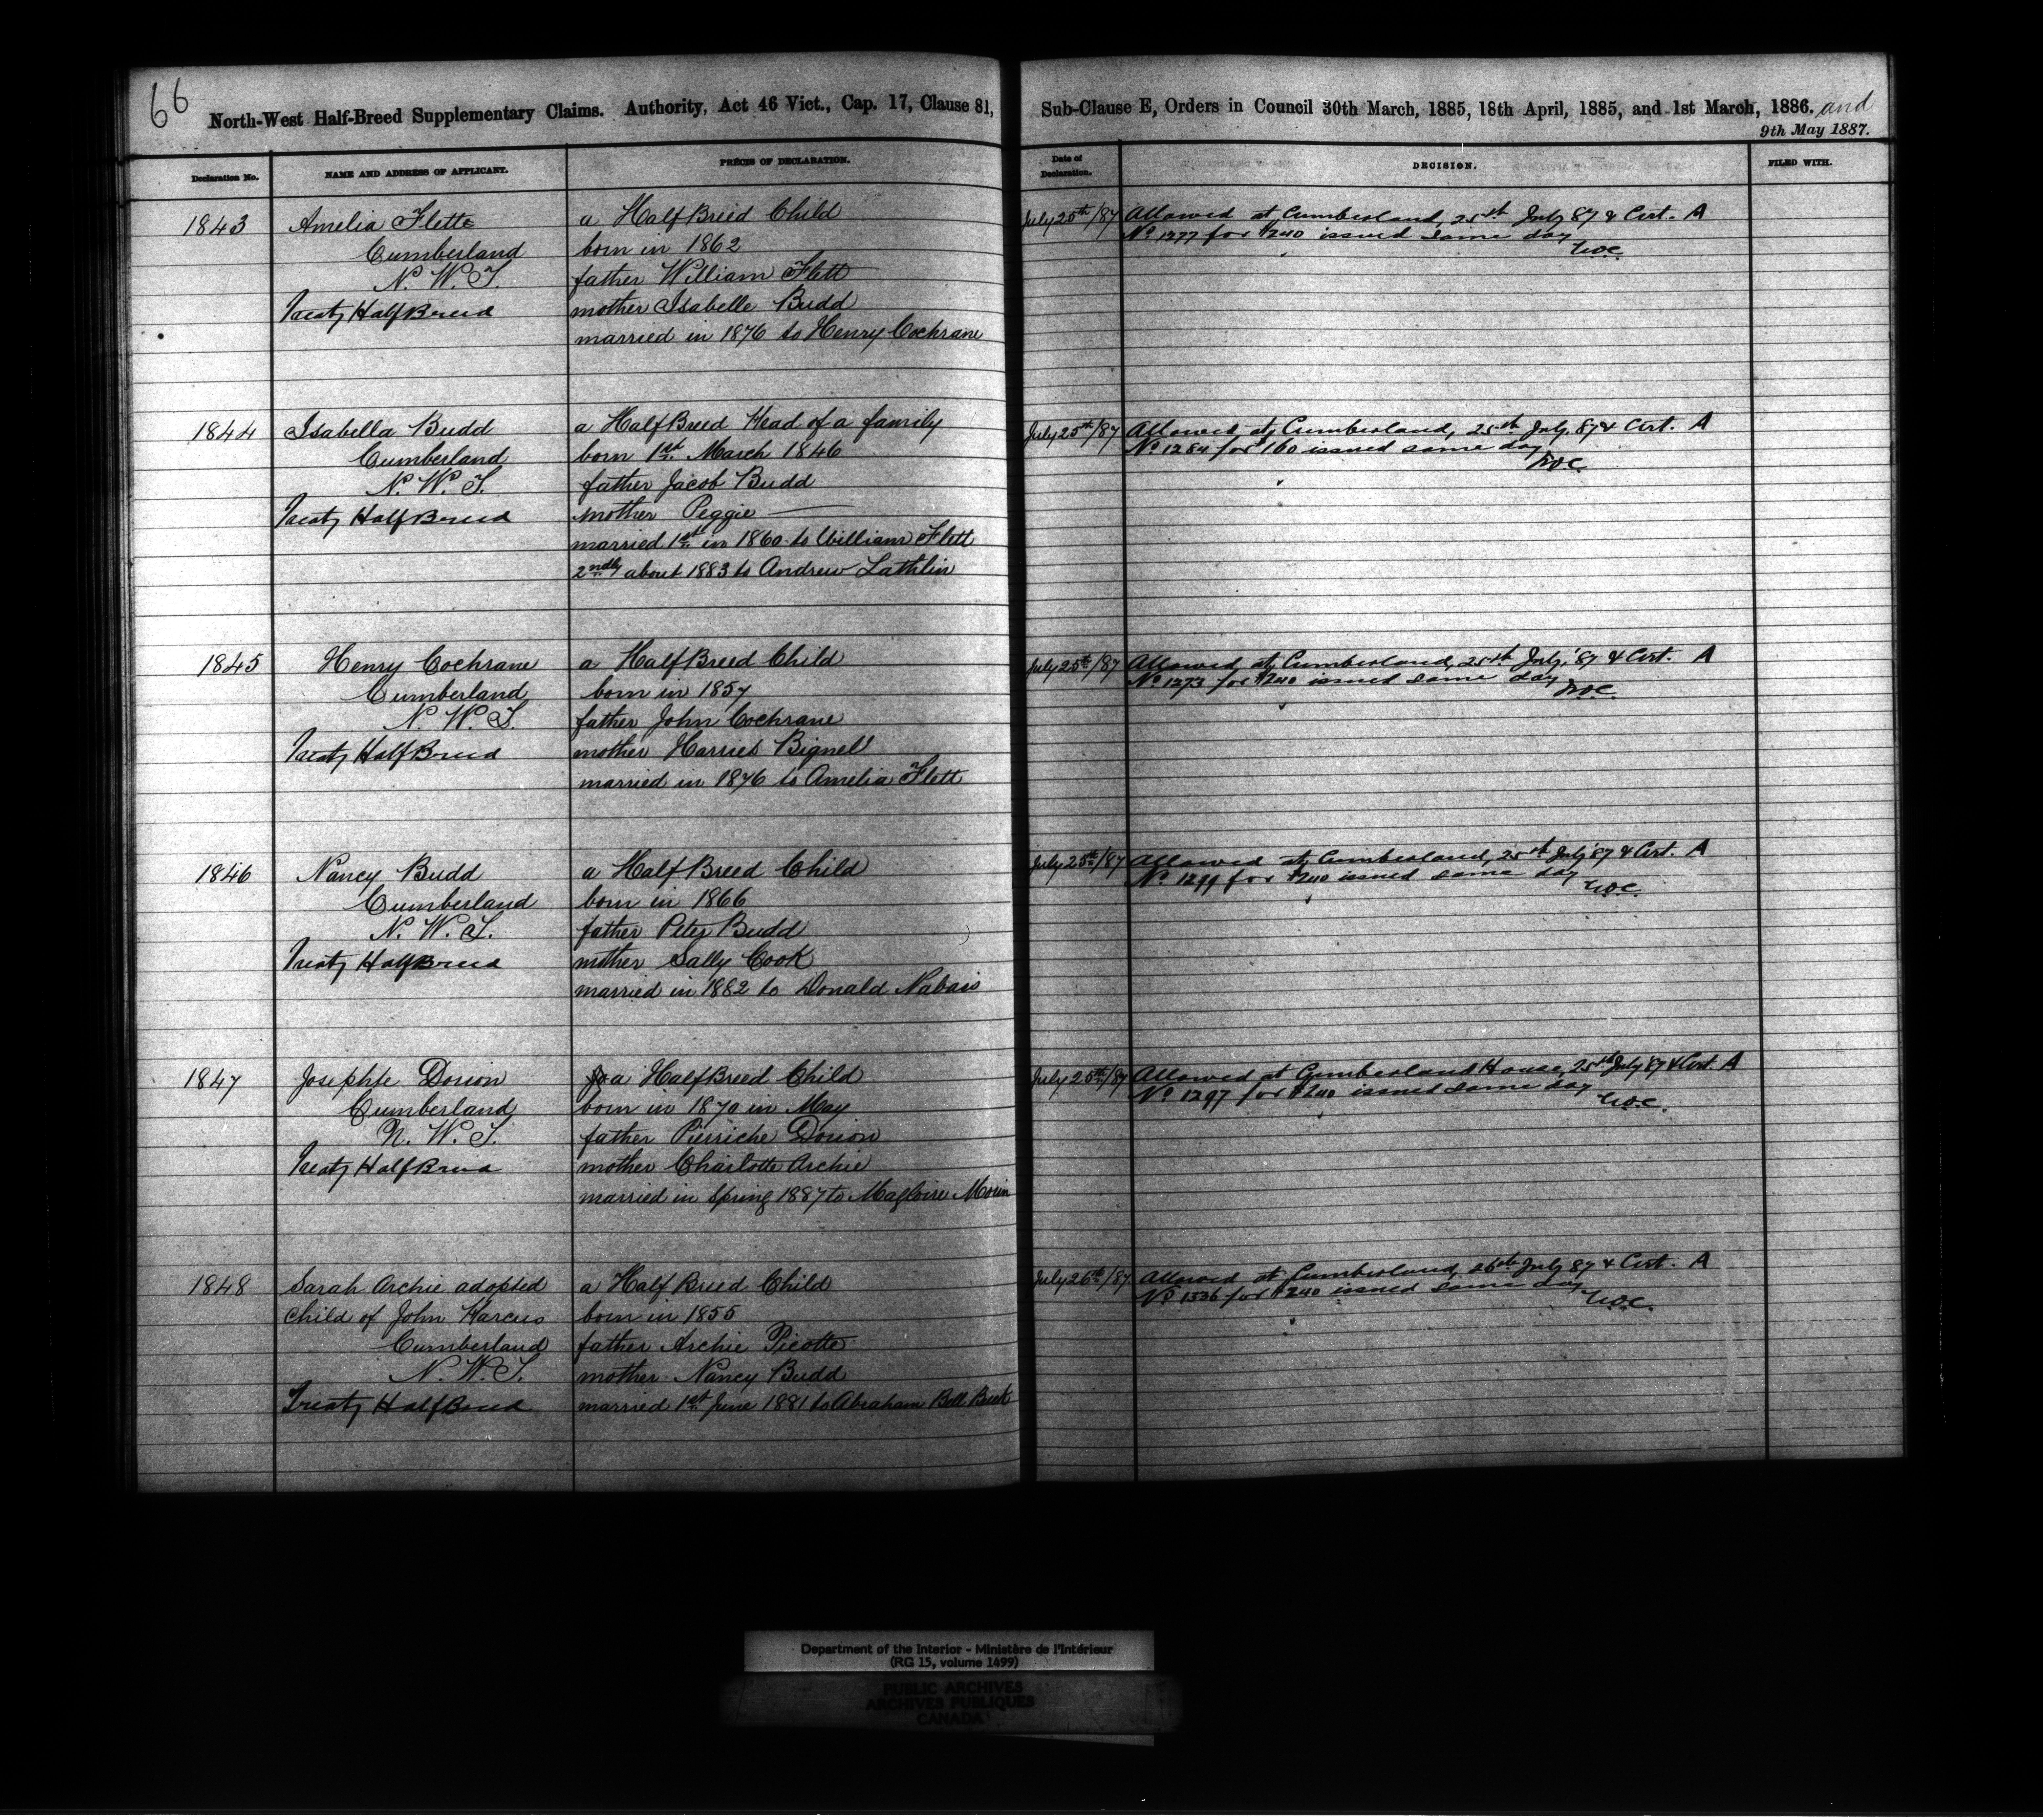 66
North-West Half-Breed Supplementary Claims. Authority, Act 46 Vict., Cap. 17, Clause 81, Sub-Clause E, Orders in Council 30th March, 1885, 18th April, 1885, and 1st March, 1886. and
9th May 1887.
Declaration No.
NAME AND ADDRESS OF APPLICANT.
PRÉCIS OF DECLARATION.
Date of Declaration.
DECISION.
FILED WITH.
1843
Amelia Flett
Cumberland
N. W. T.
Treaty Half Breed
a Half Breed Child
born in 1862
father William Flett
mother Isabelle Budd
married in 1876 to Henry Cochrane
July 25th/87
Allowed at Cumberland, 25th July 87 & Cert. A
No 1277 for $240 issued same day
1844
Isabella Budd
Cumberland
N. W. T.
Treaty Half Breed
a Half Breed Head of a family
born 1st March 1846
father Jacob Budd
mother Peggie —
married 1st in 1860 to William Flett
2ndly about 1883 to Andrew Lathlin
July 25th/87
Allowed at Cumberland, 25th July, 87 & Cert. A
No 1284 for $160 issued same day
1845
Henry Cochrane
Cumberland
N. W. T.
Treaty Half Breed
a Half Breed Child
born in 1857
father John Cochrane
mother Harriet Bignell
married in 1876 to Amelia Flett
July 25th/87
Allowed at Cumberland, 25th July, '87 & Cert. A
No 1273 for $240 issued same day
1846
Nancy Budd
Cumberland
N. W. T.
Treaty Half Breed
a Half Breed Child
born in 1866
father Peter Budd
mother Sally Cook
married in 1882 to Donald Nabais
July 25th/87
Allowed at Cumberland, 25th July '87 & Cert. A
No 1299 for $240 issued same day
1847
Josephte Dorion
Cumberland
N. W. T.
Treaty Half Breed
a Half Breed Child
born in 1870 in May
father Pierriche Dorion
mother Charlotte Archie
married in Spring 1887 to Magloire Morin
July 25th/87
Allowed at Cumberland House, 25th July '87 & Cert. A
No 1297 for $240 issued same day
1848
Sarah Archie adopted
child of John Harcus
Cumberland
N. W. T.
Treaty Half Breed
a Half Breed Child
born in 1855
father Archie Picotte
mother Nancy Budd
married 1st June 1881 to Abraham Bell
July 26th/87
Allowed at Cumberland, 26th July 87 & Cert. A
No 1336 for $240 issued same day
Department of the Interior - Ministère de l'Intérieur
(RG 15, volume 1499)
PUBLIC ARCHIVES
ARCHIVES PUBLIQUES
CANADA